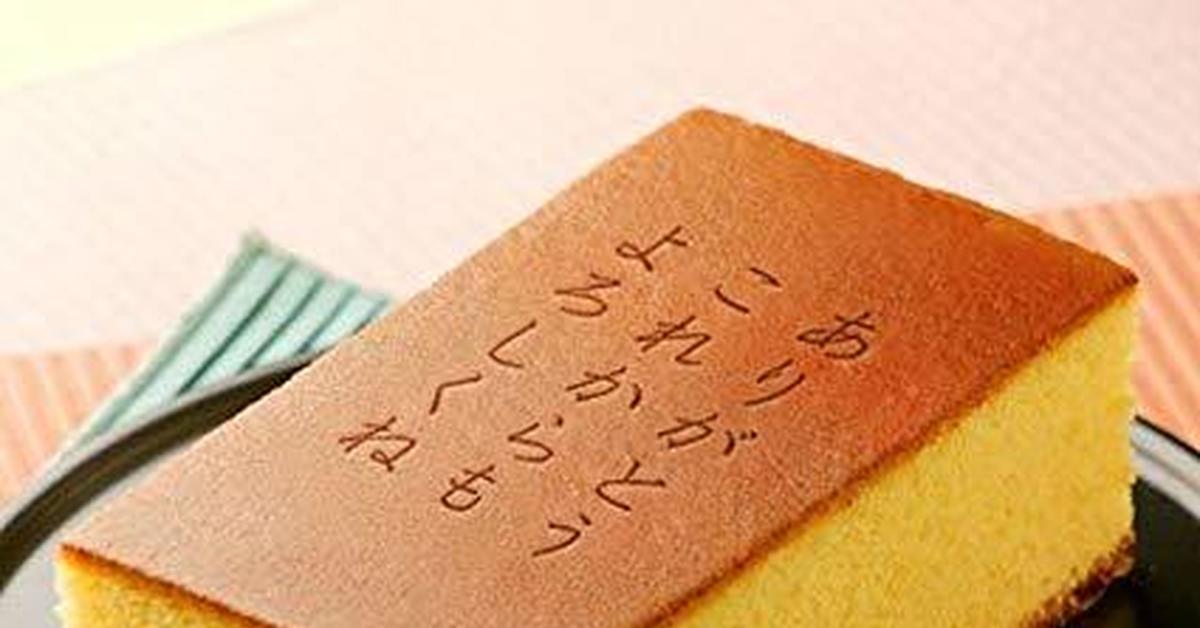 ありがとう
これからも
よろしくね